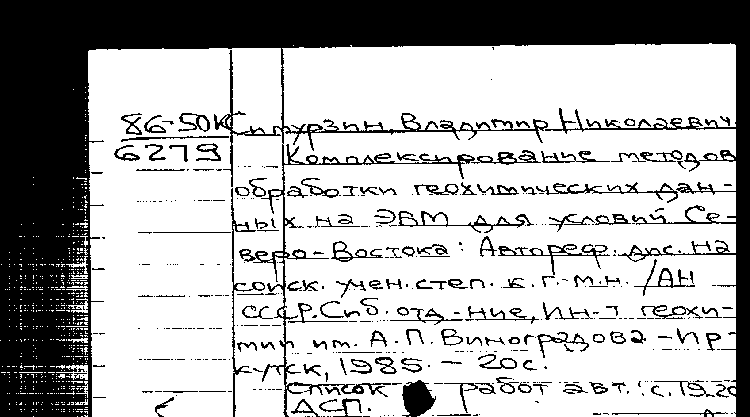 86-50К Ситурзин, Владимир Николаевич.
6279 Комплексирование методов
обработки геохимических дан-
ных на ЭВМ для условий Се-
веро-Востока: Автореф. дис. на
соиск. учен. степ. к. г.-м.н. /АН
СССР. Сиб. отд-ние, Ин-т геохи-
мии им. А.П. Виноградова - Ир-
кутск, 1985. - 20с.
Список работ авт.: с. 19-20
ДСП.